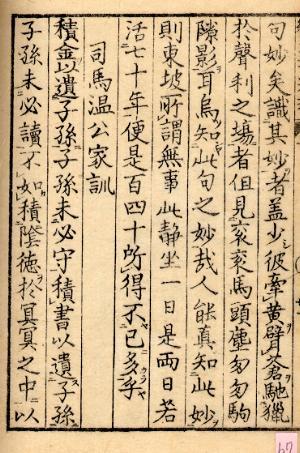 句妙矣識其妙者盖少彼牽黄臂蒼馳獵
於聲利之場者但見衮衮馬頭塵匆匆駒
隙影耳烏知此句之妙哉人能真知此妙
則東坡所謂無事此静坐一日是兩日若
活七十年便是百四十所得不已多乎
司馬温公家訓
積金以遺子孫子孫未必守積書以遺子孫
子孫未必讀不如積陰德於冥冥之中以
67